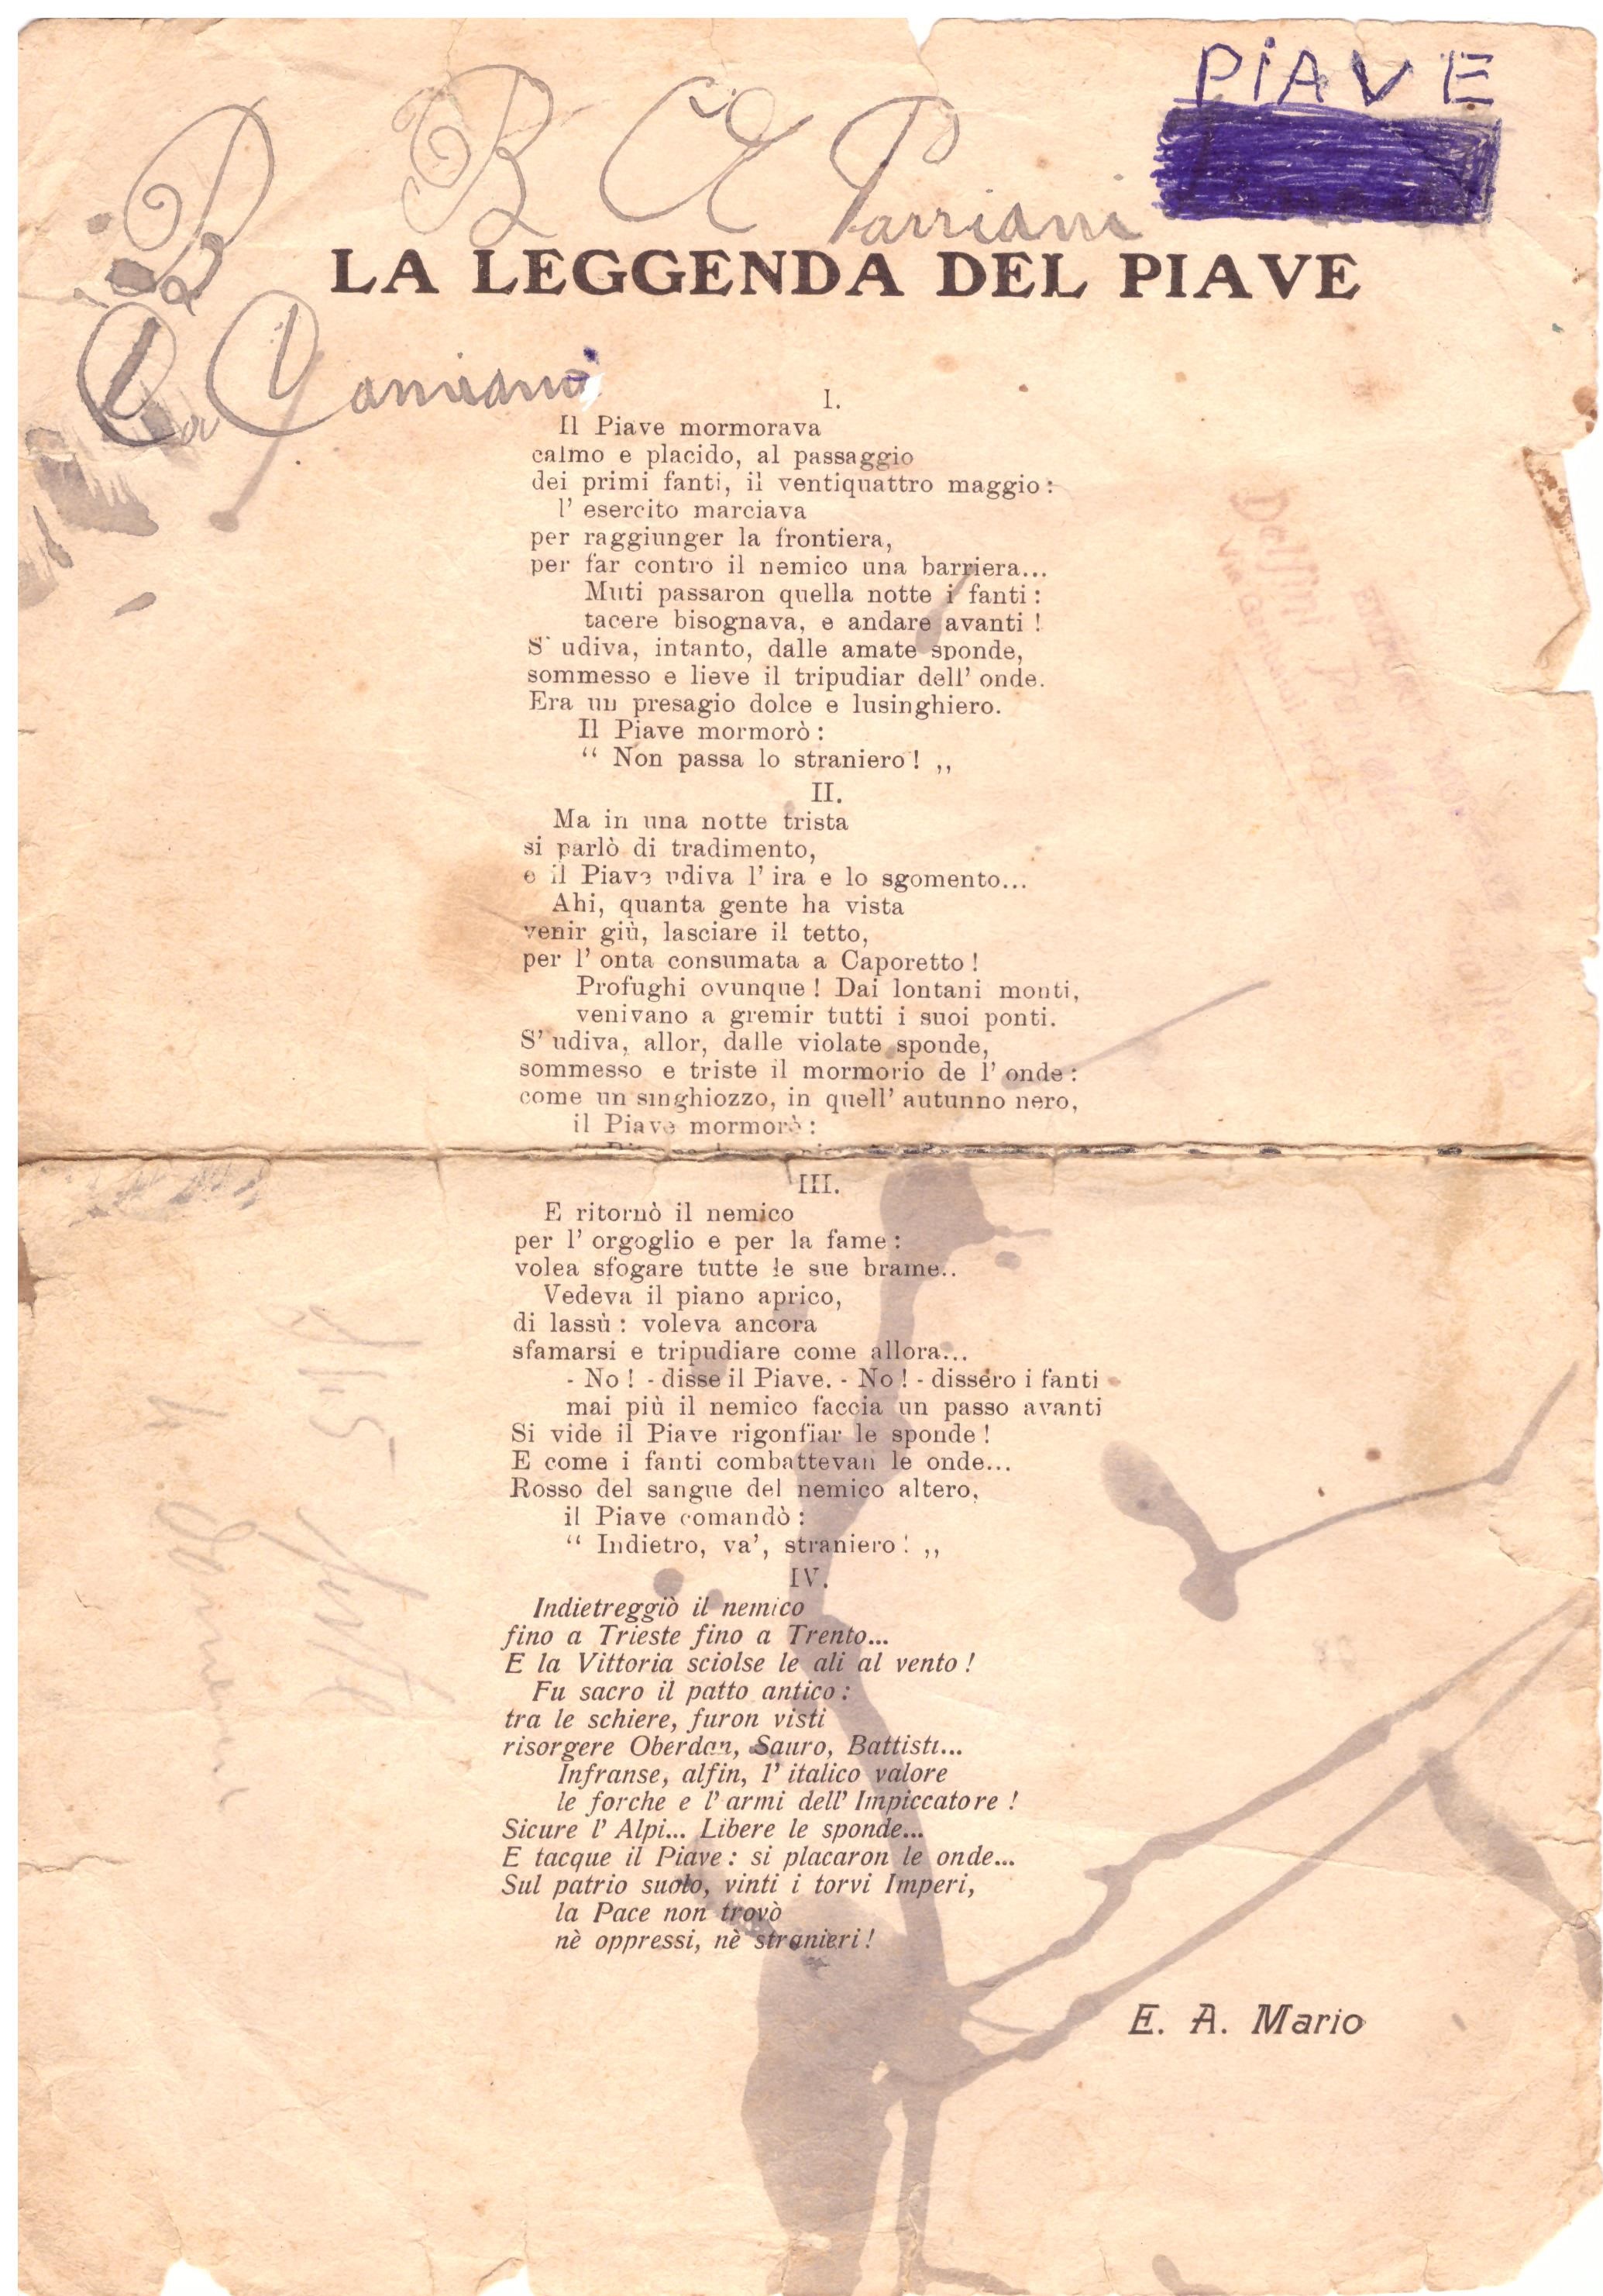 PiAVE
B B
Parriani
LA LEGGENDA DEL PIAVE
I.
Il Piave mormorava
calmo e placido, al passaggio
dei primi fanti, il ventiquattro maggio:
l' esercito marciava
per raggiunger la frontiera,
per far contro il nemico una barriera...
Muti passaron quella notte i fanti:
tacere bisognava, e andare avanti!
S' udiva, intanto, dalle amate sponde,
sommesso e lieve il tripudiar dell' onde.
Era un presagio dolce e lusinghiero.
Il Piave mormorò:
“ Non passa lo straniero! „
II.
Ma in una notte trista
si parlò di tradimento,
e il Piave udiva l' ira e lo sgomento...
Ahi, quanta gente ha vista
venir giù, lasciare il tetto,
per l' onta consumata a Caporetto!
Profughi ovunque! Dai lontani monti,
venivano a gremir tutti i suoi ponti.
S' udiva, allor, dalle violate sponde,
sommesso e triste il mormorio de l' onde:
come un singhiozzo, in quell' autunno nero,
il Piave mormorò:
III.
E ritornò il nemico
per l' orgoglio e per la fame:
volea sfogare tutte le sue brame..
Vedeva il piano aprico,
di lassù: voleva ancora
sfamarsi e tripudiare come allora...
- No! - disse il Piave. - No! - dissero i fanti -
mai più il nemico faccia un passo avanti
Si vide il Piave rigonfiar le sponde!
E come i fanti combattevan le onde...
Rosso del sangue del nemico altero,
il Piave comandò:
“ Indietro, va', straniero! „
IV.
Indietreggiò il nemico
fino a Trieste fino a Trento...
E la Vittoria sciolse le ali al vento!
Fu sacro il patto antico:
tra le schiere, furon visti
risorgere Oberdan, Sauro, Battisti...
Infranse, alfin, l' italico valore
le forche e l' armi dell' Impiccatore!
Sicure l' Alpi... Libere le sponde...
E tacque il Piave: si placaron le onde...
Sul patrio suolo, vinti i torvi Imperi,
la Pace non trovò
nè oppressi, nè stranieri!
E. A. Mario